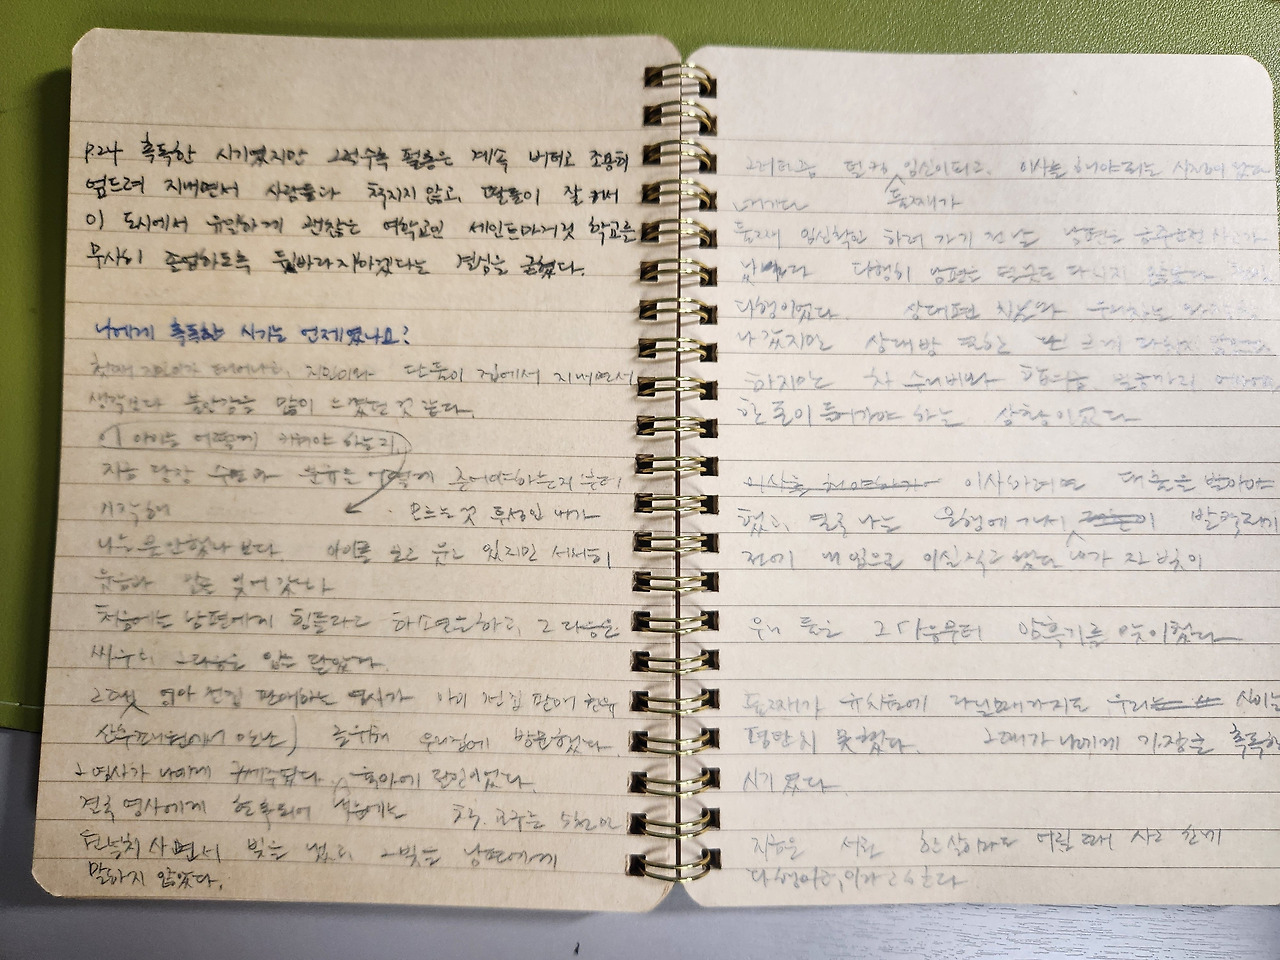 P.24 혹독한 시기였지만 그럴수록 필롱은 계속 버티고 조용히
엎드려 지내면서 사람들과 척지지 않고, 딸들이 잘 커서
이 도시에서 유일하게 괜찮은 여학교인 세인트마거릿 학교를
무사히 졸업하도록 뒷바라지하겠다는 결심을 굳혔다.
나에게 혹독한 시기는 언제였나요?
첫째 지민이가 태어나고, 지민이와 단둘이 집에서 지내면서
생각보다 불안감을 많이 느꼈던 것 같다.
이 아이는 어떻게 키워야 하는지,
지금 당장 수면과 분유는 어떻게 줘야하는지부터
모르는 것 투성인 내가
나는 불안했나 보다. 아이를 보고 웃고 있지만 서서히
웃음과 말을 잃어 갔다
처음에는 남편에게 힘들다고 하소연을하고, 그 다음은
싸우고 그다음은 입을 닫았다.
그때, 영아 전집 판매하는 영사가 아기 전집 판매
산후조리원에서 만난) 을위해 우리집에 방문했다
그 영사가 나에게 구세주였다. 육아에 달인이었다.
결국 영사에게 현혹되어 책, 교구는 5천만
원넘치 사면서 빚을 냈고, 그빚을 남편에게
말하지 않았다.
그러던중 덜컥 임신이되고, 이사를 해야되는 시점이 왔다
내가다 둘째가
둘째 임신확인 하러 가기 전 날 남편은 음주운전 사고가
났다 다행히 남편은 다치지 않았다
다행이었다. 상대편 치료와 우리차는
나갔지만 상대방 또한 크게 다치지 않았다
하지만 차 수리비와 합의금 벌금까지 어마어마
한 돈이 들어가야 하는 상황이었다
이사를 해야하는 이사하려면 대출을 받아야
했고, 결국 나는 은행에 가서 발각되기
전에 내 입으로 이실직고 했다 내가 진 빚이
우리 둘은 그 다음부터 암흑기를 맞이했다
둘째가 유치원에 다닐때까지도 우리는 사이는
평탄치 못했다. 그때가 나에게 가장큰 혹독한
시기 였다.
지금은 서로 한살이라도 어릴 때 사고 친게
다행이군, 이라